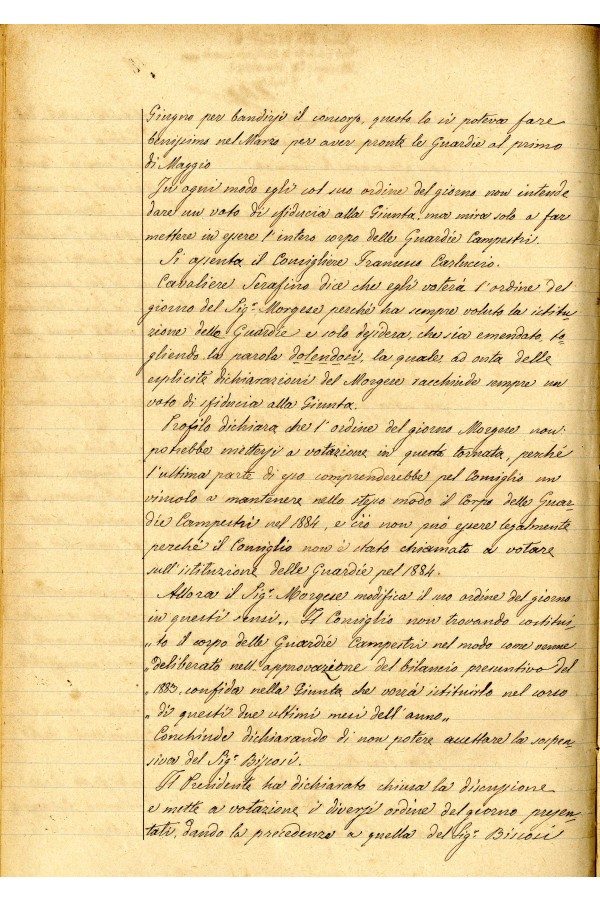 Giugno per bandirsi il concorso, questo lo si poteva fare
benissimo nel Marzo per aver pronte le Guardie al primo
di Maggio
In ogni modo egli col suo ordine del giorno non intende
dare un voto di sfiducia alla Giunta, ma mira solo a far
mettere in essere l'intero corpo delle Guardie Campestri.
Si assenta il Consigliere Francesco Carluccio.
Cavaliere Serafino dice che egli voterà l'ordine del
giorno del Sig.r Morgese perché ha sempre voluto la istitu-
zione delle Guardie e solo desidera, che sia emendato, to-
gliendo la parola dolendosi, la quale ad onta delle
esplicite dichiarazioni del Morgese racchiude sempre un
voto di sfiducia alla Giunta.
Profilo dichiara che l'ordine del giorno Morgese non
potrebbe mettersi a votazione in questa tornata, perché
l'ultima parte di esso comprenderebbe pel Consiglio un
vincolo a mantenere nello stesso modo il Corpo delle Guar-
die Campestri nel 1884, e ciò non può essere legalmente
perché il Consiglio non è stato chiamato a votare
sull'istituzione delle Guardie pel 1884.
Allora il Sig.r Morgese modifica il suo ordine del giorno
in questi sensi „ Il Consiglio non trovando costitui-
„ to il corpo delle Guardie Campestri nel modo come venne
„ deliberato nell'approvazione del bilancio presuntivo del
„ 1883, confida nella Giunta che vorrà istituirlo nel corso
„ di questi due ultimi mesi dell'anno „
Conchiude dichiarando di non potere accettare la sospen-
siva del Sig.r Biscosi.
Il Presidente ha dichiarato chiusa la discussione
e mette a votazione i diversi ordine del giorno presen-
tati, dando la precedenza a quella del Sig.r Biscosi